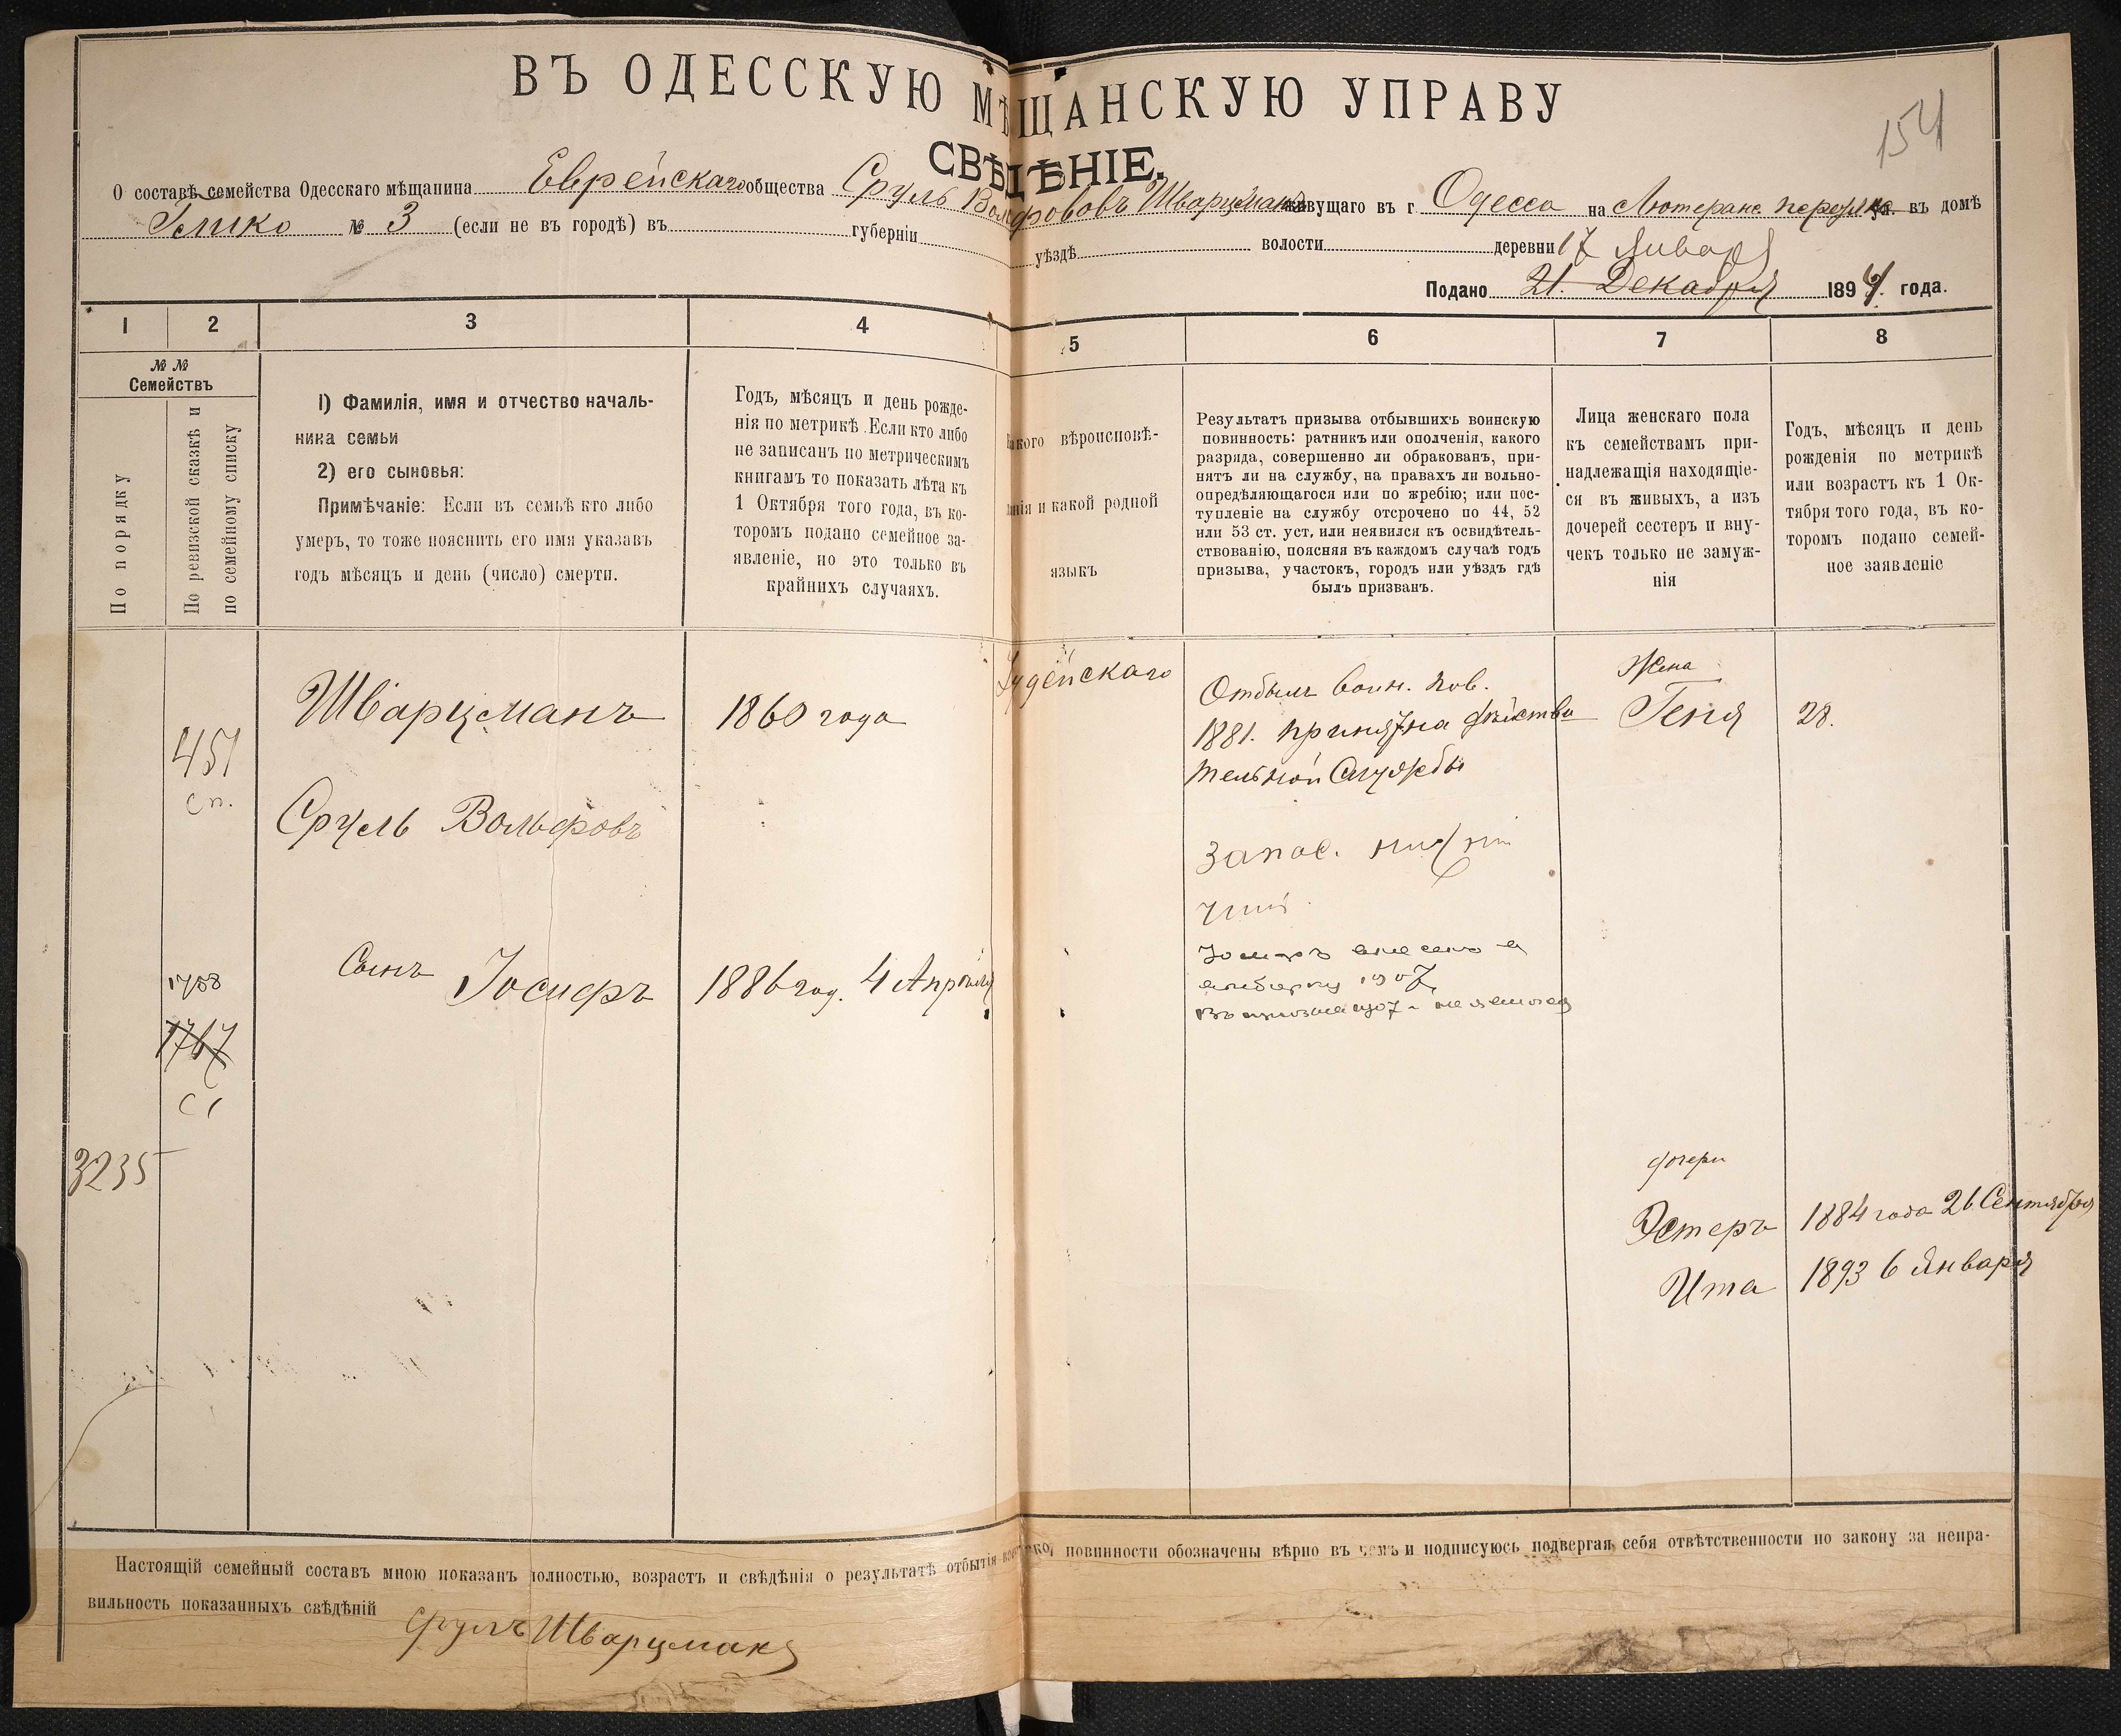 ВЪ ОДЕССКУЮ МѢЩАНСКУЮ УПРАВУ
154
СВѢДѢНІЕ.
О составѣ семейства Одесскаго мѣщанина Еврейскаго общества Сруль Вольфовъ Шварцманъ живущаго въ г. Одесса на Лютеранс. переулкѣ ул. въ домѣ
№ 3 (если не въ городѣ) въ губерніи уѣздѣ волости деревни
17 Января
Подано 21. Декабря 1894. года.
1 2 3 4 5 6 7 8
№ №
Семействъ
По порядку
По ревизской сказкѣ и
по семейному списку
1) Фамилія, имя и отчество началь-
ника семьи
2) его сыновья:
Примѣчаніе: Если въ семьѣ кто либо
умеръ, то тоже пояснить его имя указавъ
годъ мѣсяцъ и день (число) смерти.
Годъ, мѣсяцъ и день рожде-
нія по метрикѣ. Если кто либо
не записанъ по метрическимъ
книгамъ то показать лѣта къ
1 Октября того года, въ ко-
торомъ подано семейное за-
явленіе, но это только въ
крайнихъ случаяхъ.
Какого вѣроисповѣ-
данія и какой родной
языкъ
Результатъ призыва отбывшихъ воинскую
повинность: ратникъ или ополченія, какого
разряда, совершенно ли обракованъ, при-
нятъ ли на службу, на правахъ ли вольно-
опредѣляющагося или по жребію; или пос-
тупленіе на службу отсрочено по 44, 52
или 53 ст. уст, или неявился къ освидѣтель-
ствованію, поясняя въ каждомъ случаѣ годъ
призыва, участокъ, городъ или уѣздъ гдѣ
былъ призванъ.
Лица женскаго пола
къ семействамъ при-
надлежащія находящіе-
ся въ живыхъ, а изъ
дочерей сестеръ и вну-
чекъ только не замуж-
нія
Годъ, мѣсяцъ и день
рожденія по метрикѣ
или возрастъ къ 1 Ок-
тября того года, въ ко-
торомъ подано семей-
ное заявленіе
451
сп.
Шварцманъ
1860 года
Іудейскаго
Отбылъ воин. пов.
1881. принятъ на дѣйстви
тельной Службы
Жена
Геня
28.
Сруль Вольфовъ
запас. нижній
чинъ
1708
1767
Сынъ Іосифъ
1886 год. 4 Апрѣля
Іосифъ внесенъ в
1907
3235
дочери
Эстеръ
1884 года 26 Сентября
Ита
1893 6 Января
Настоящій семейный составъ мною показанъ полностью, возрастъ и свѣдѣнія о результатѣ отбытія воинской повинности обозначены вѣрно въ чемъ и подписуюсь подвергая себя отвѣтственности по закону за непра-
вильность показанныхъ свѣдѣній
Сруль Шварцманъ